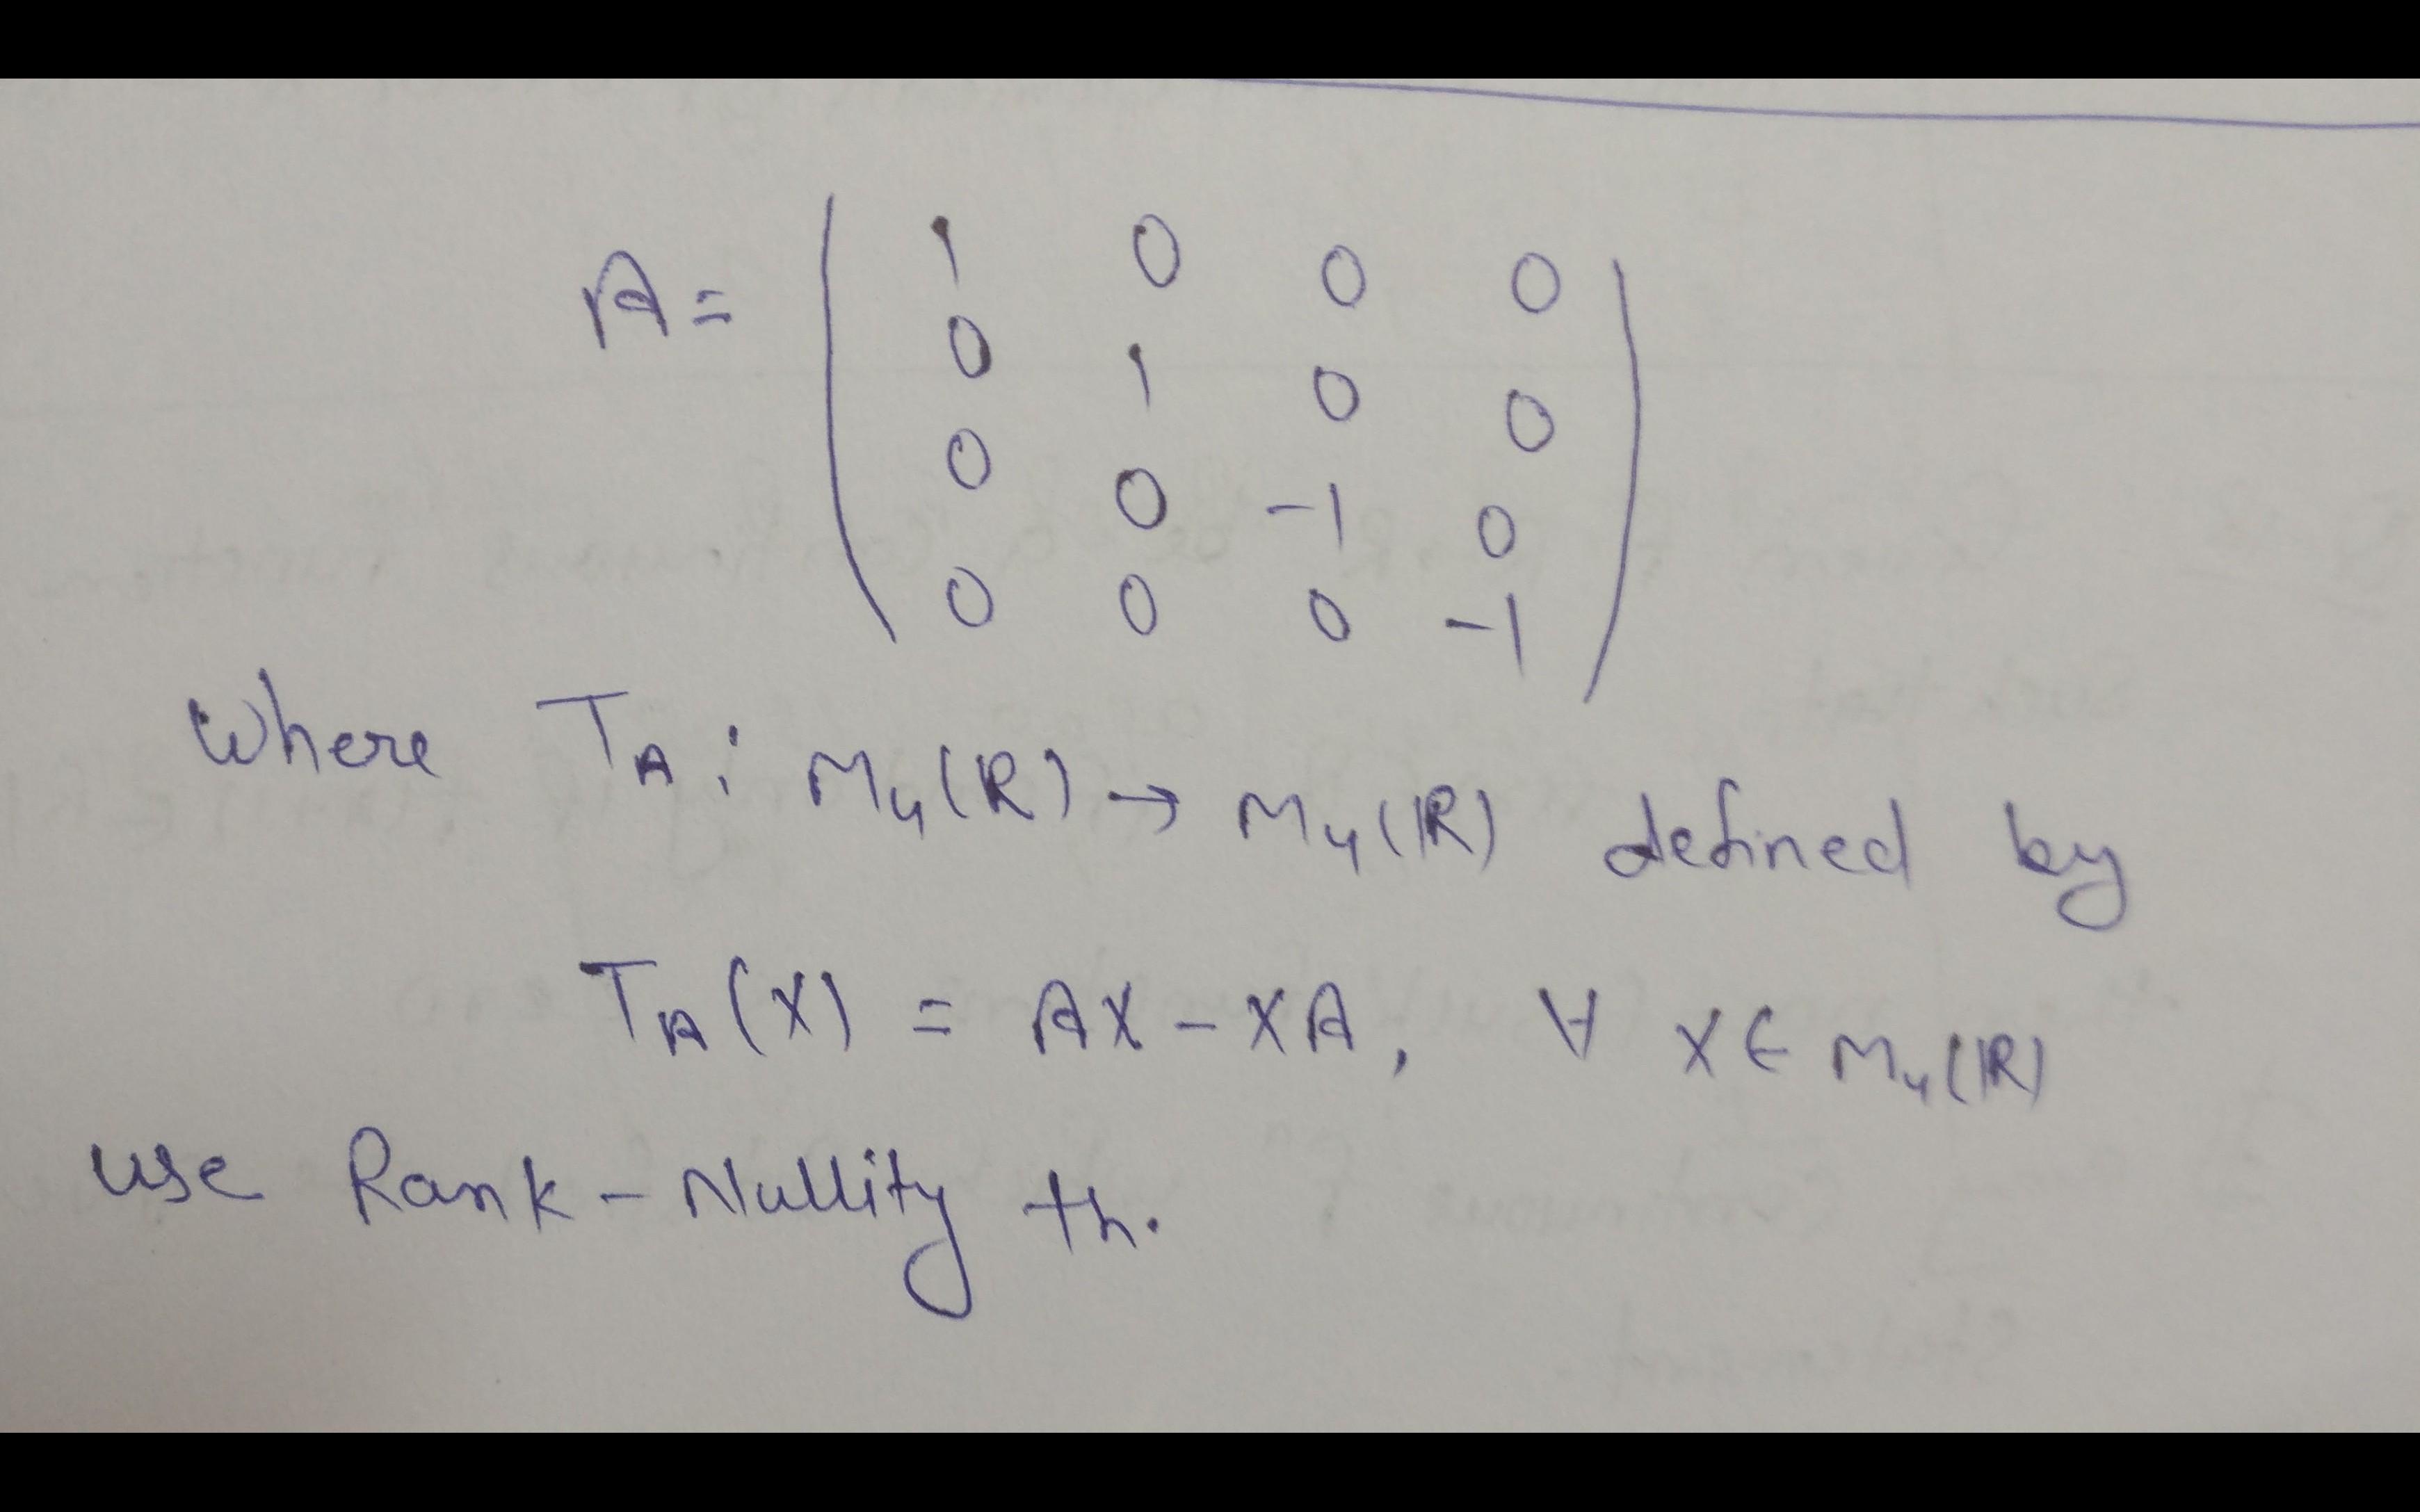 A = ( 1 0 0 0
0 1 0 0
0 0 -1 0
0 0 0 -1 )
Where T_A : M_4(R) → M_4(R) defined by
T_A(X) = AX - XA, ∀ X ∈ M_4(R)
use Rank-Nullity th.